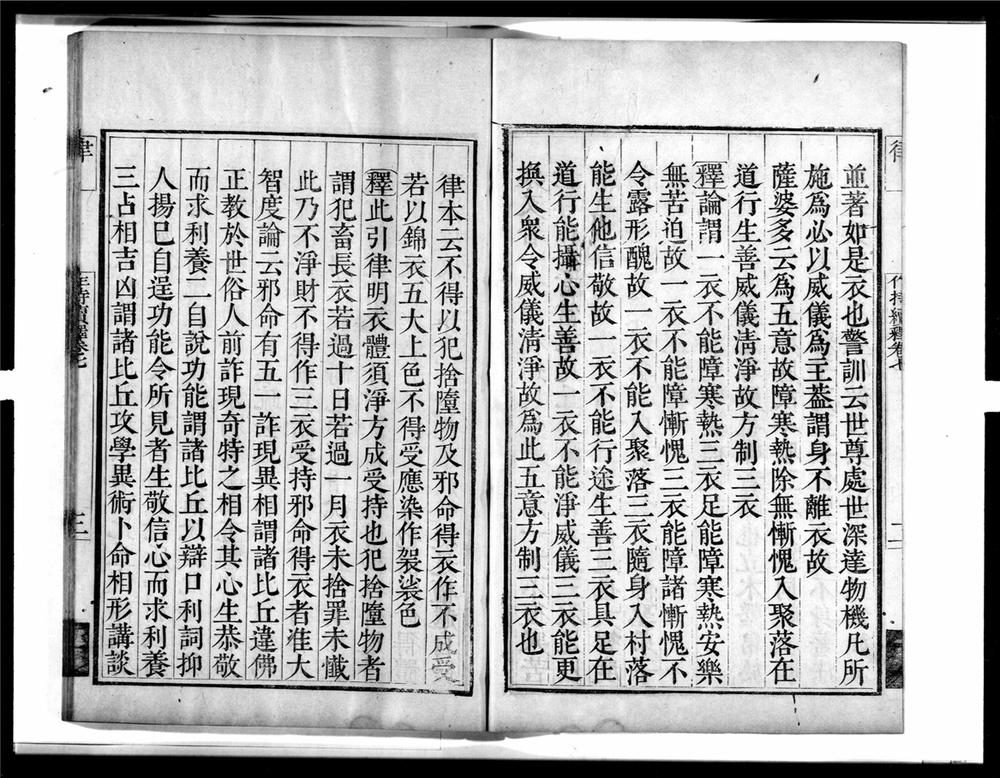 並著如是衣也警訓云世尊處世深達物機凡所
施爲必以威儀爲王葢謂身不離衣故
薩婆多云爲五意故障寒熱除無慚愧入聚落在
道行生善威儀清淨故方制三衣
釋論謂一衣不能障寒熱三衣足能障寒熱安樂
無苦迫故一衣不能障慚愧三衣能障諸慚愧不
令露形醜故一衣不能入聚落三衣隨身入村落
能生他信敬故一衣不能行途生善三衣具足在
道行能攝心生善故一衣不能淨威儀三衣能更
換入衆令威儀淸淨故爲此五意方制三衣也
律
作持續釋卷七
二
律本云不得以犯捨墮物及邪命得衣作不成受
若以錦衣五大上色不得受應染作袈裟色
釋此引律明衣體須淨方成受持也犯捨墮物者
謂犯畜長衣若過十日若過一月衣未捨罪未懺
此乃不淨財不得作三衣受持邪命得衣者准大
智度論云邪命有五一詐現異相謂諸比丘違佛
正教於世俗人前詐現奇特之相令其心生恭敬
而求利養二自說功能謂諸比丘以辯口利詞抑
人揚已自逞功能令所見者生敬信心而求利養
三占相吉凶謂諸比丘攻學異術卜命相形講談
律
三